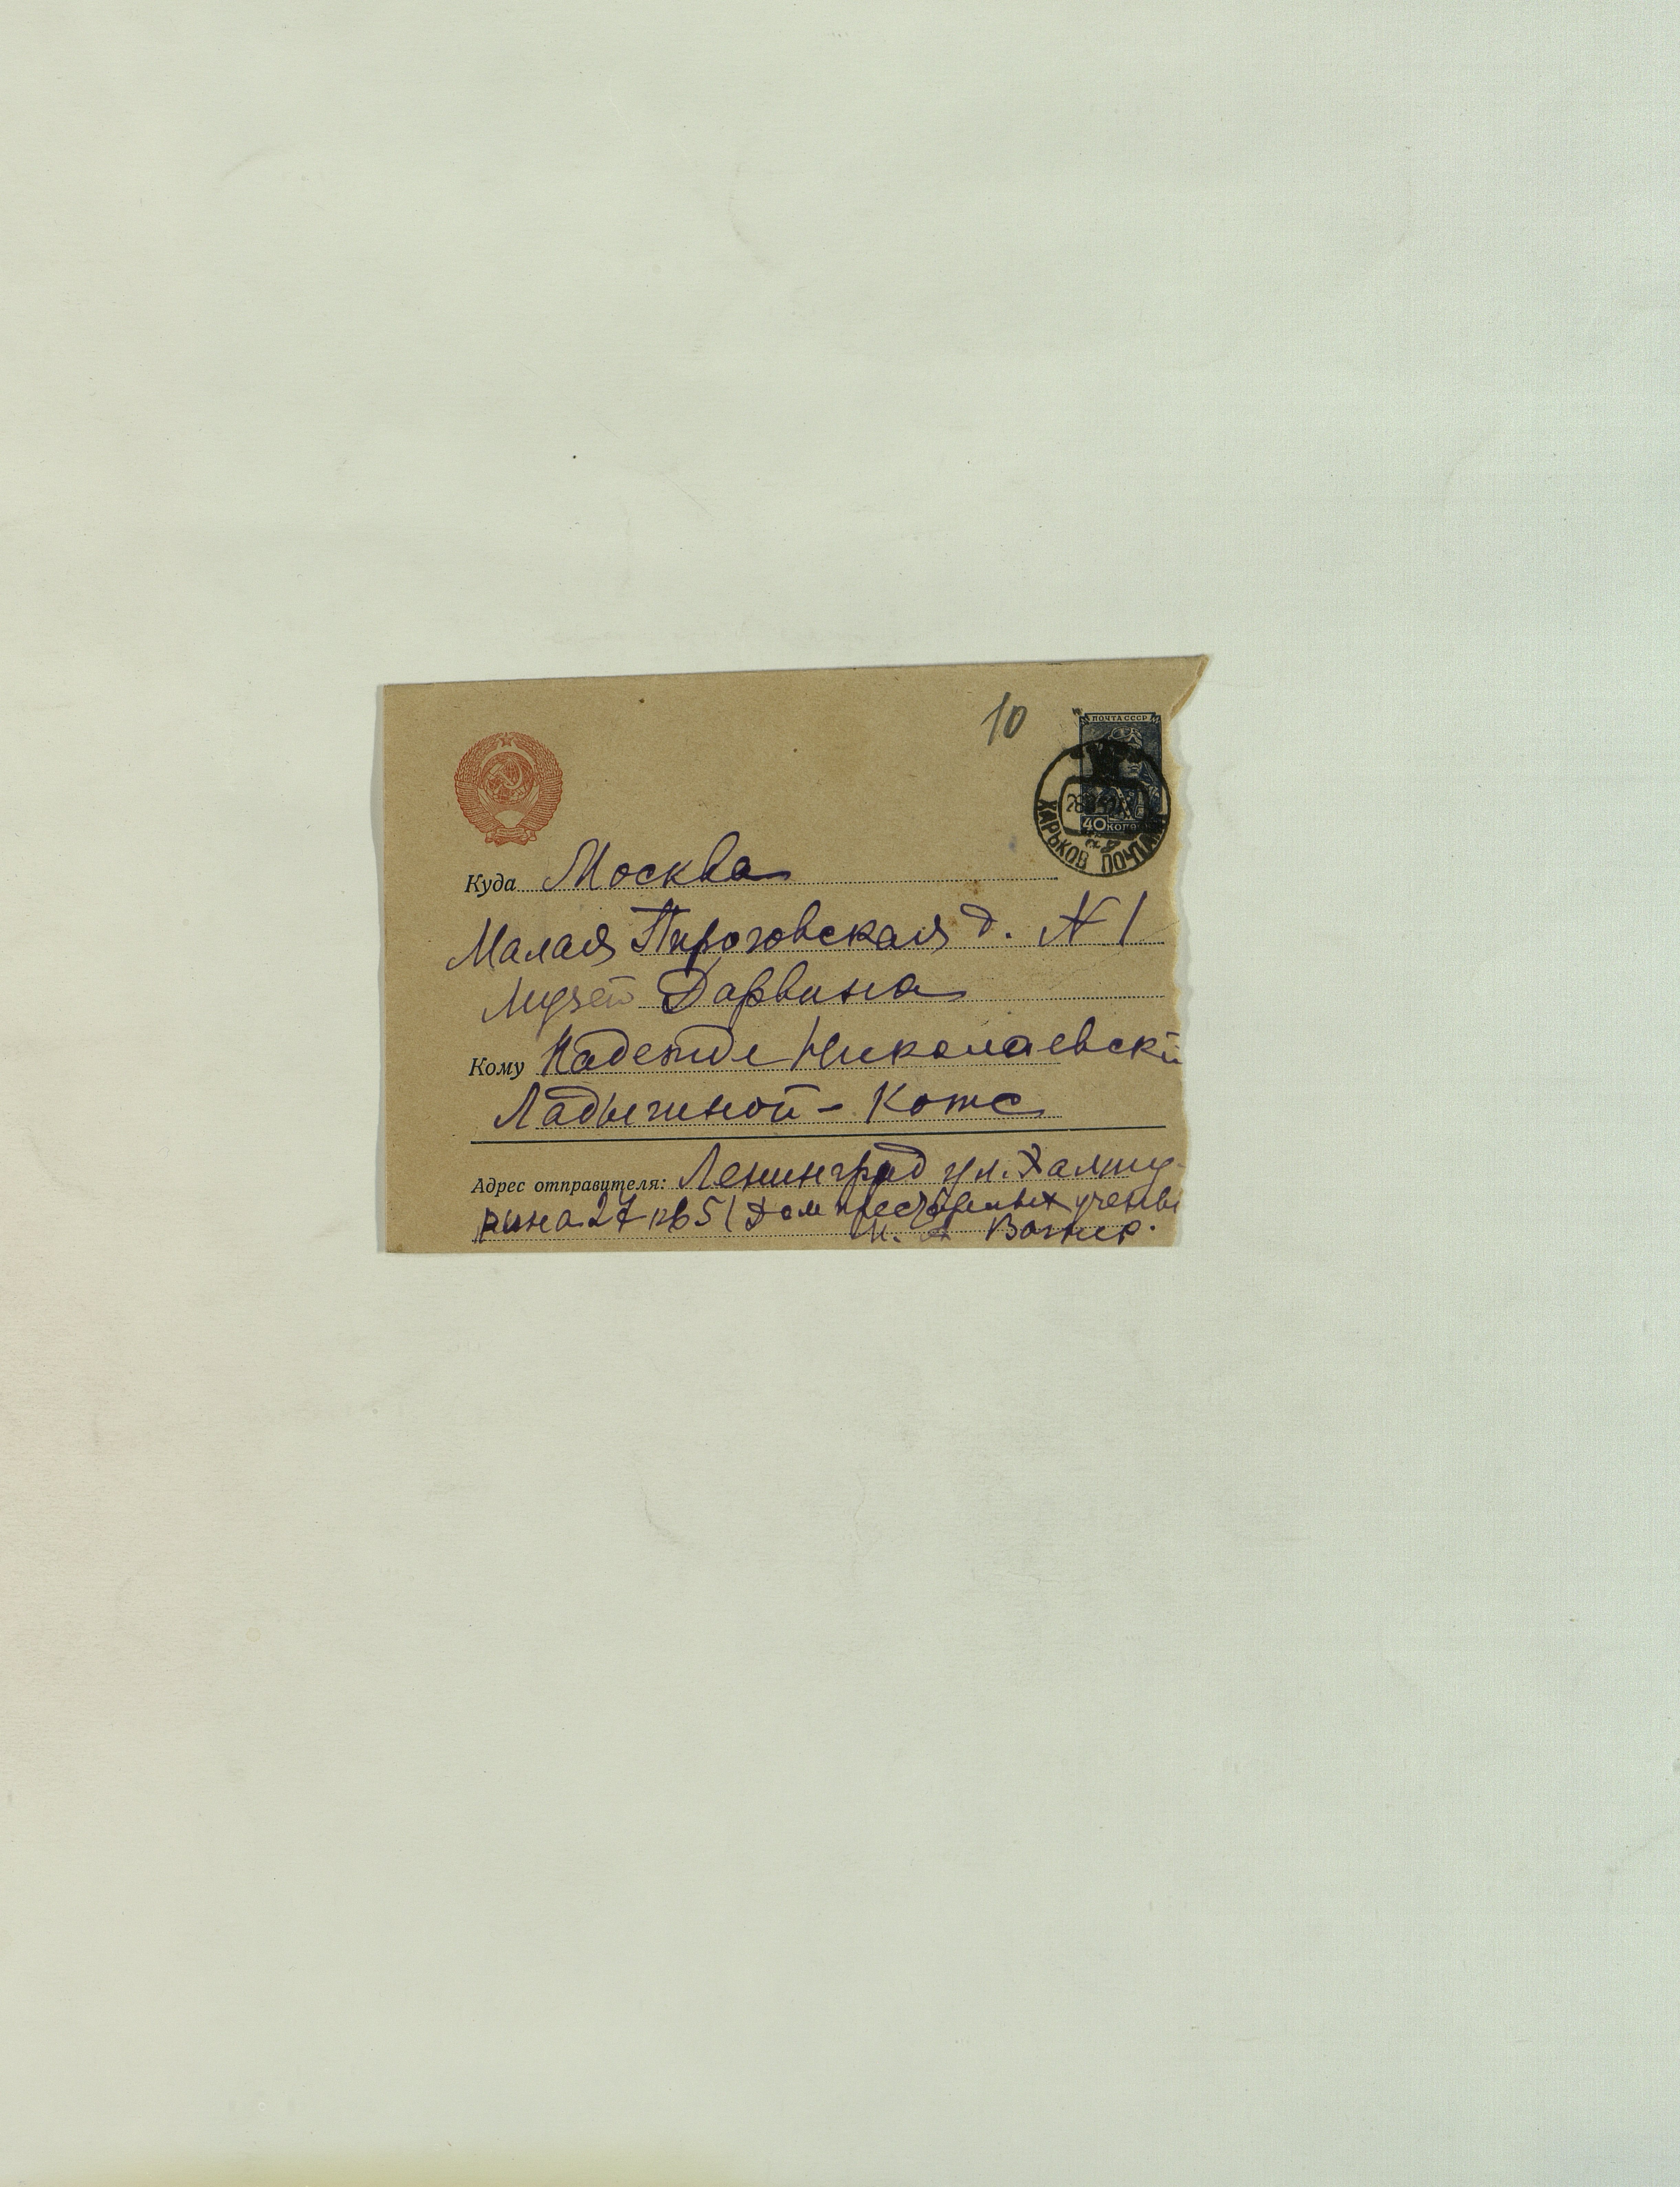 10
ПОЧТА СССР
40 КОПЕЕК
ХАРЬКОВ ПОЧТАМТ
Куда Москва
Малая Пироговская д. N 1
Музей Дарвина
Кому Надежде Николаевской
Ладыгиной - Котс
Адрес отправителя: Ленинград ул. Халту-
рина 27 кв 5 (Дом престарелых ученых
Вагнер.